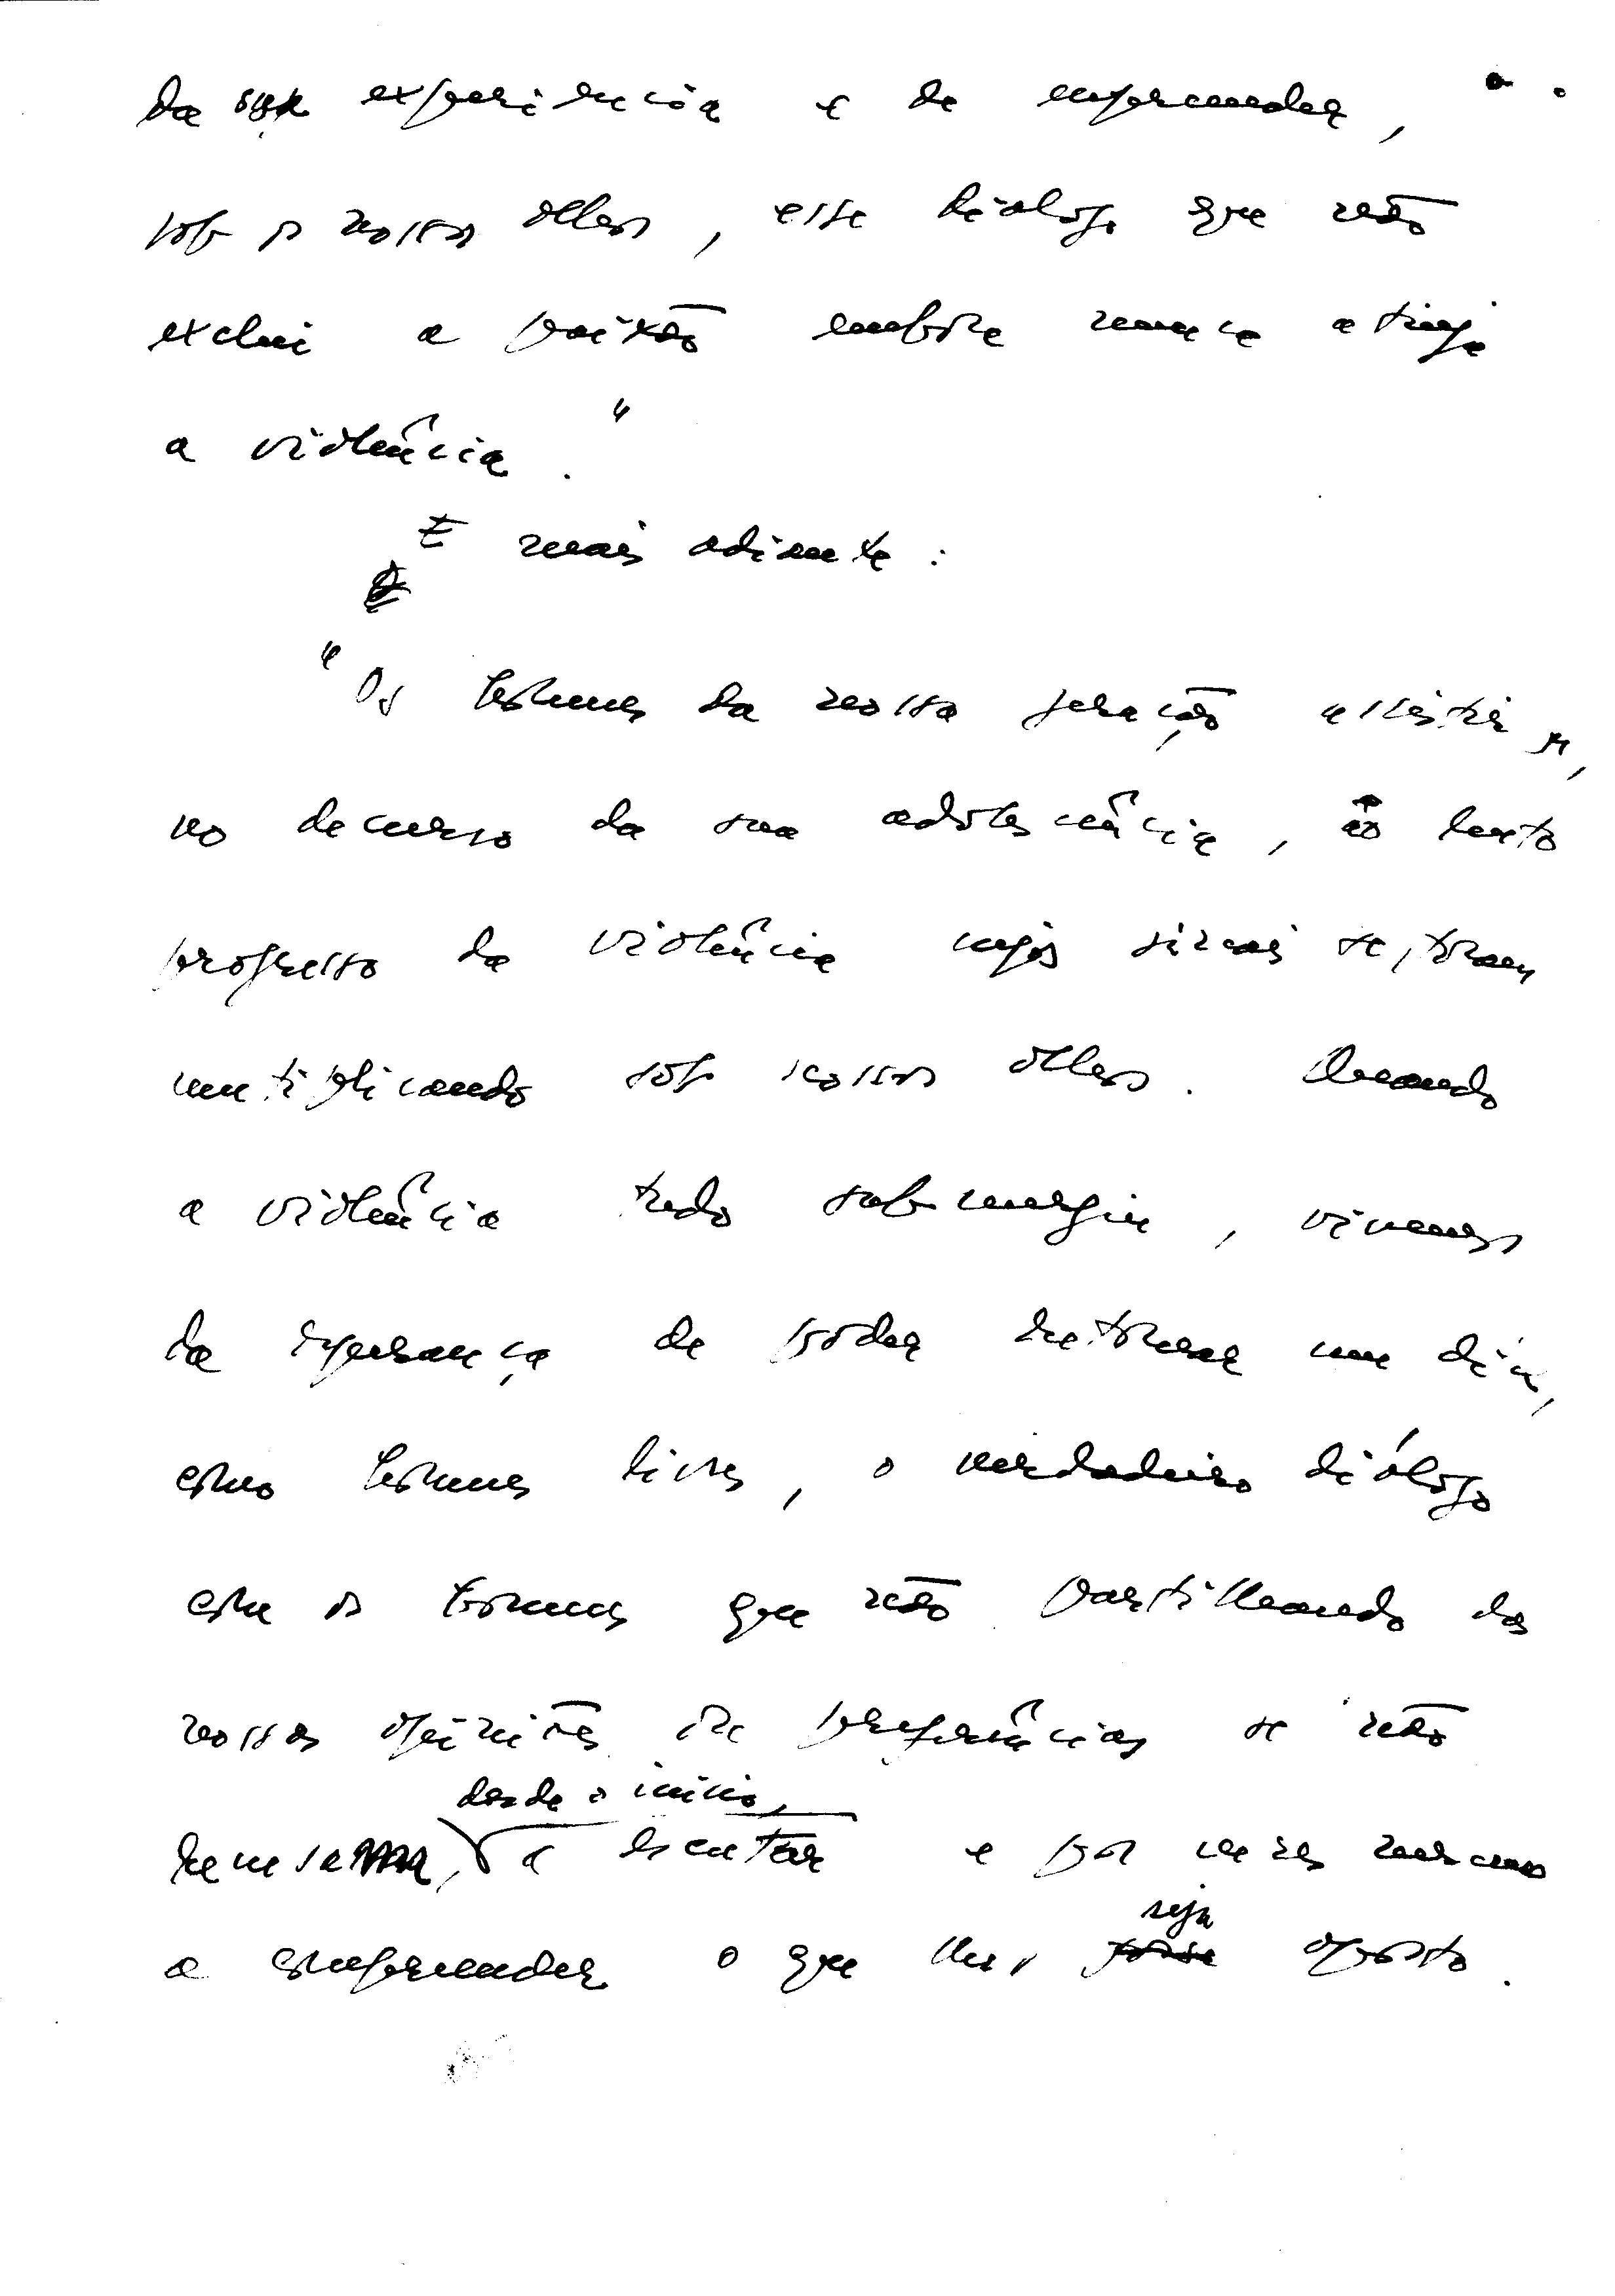 da sua experiência e de empreender,
sob os nossos olhos, esse diálogo que não
exclui a paixão embora nunca atinja
a violência."
E mais adiante:
"Os homens da nossa geração assistiram,
no decurso da sua adolescência, ao lento
progresso da violência cujos sinais se foram
mutiplicando sob nossos olhos. Quando
a violência tudo submergiu, vivemos
da esperança de poder retomar um dia,
como homens livres, o verdadeiro diálogo
com os homens que não partilhando das
nossas opiniões ou preferências se não
desde o início,
recusem, a escutar e por vezes mesmo
seja
a compreender o que lhes fosse oposto.